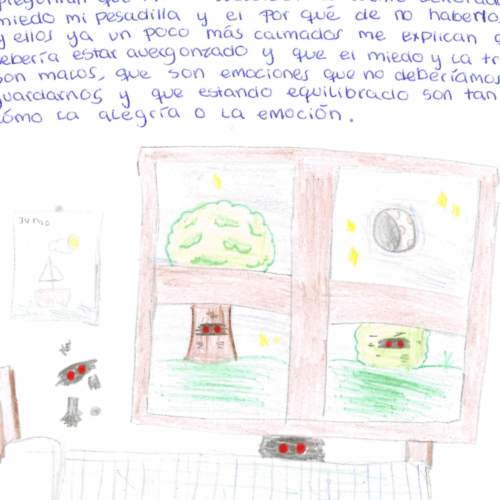 miedo mi pesadilla y el por qué de no haberlo
y ellos ya un poco más calmados me explican q
debería estar avergonzado y que el miedo y la tr
son malos, que son emociones que no deberíamos
guardarnos y que estando equilibrado son tan
cómo la alegría o la emoción.
JUNIO